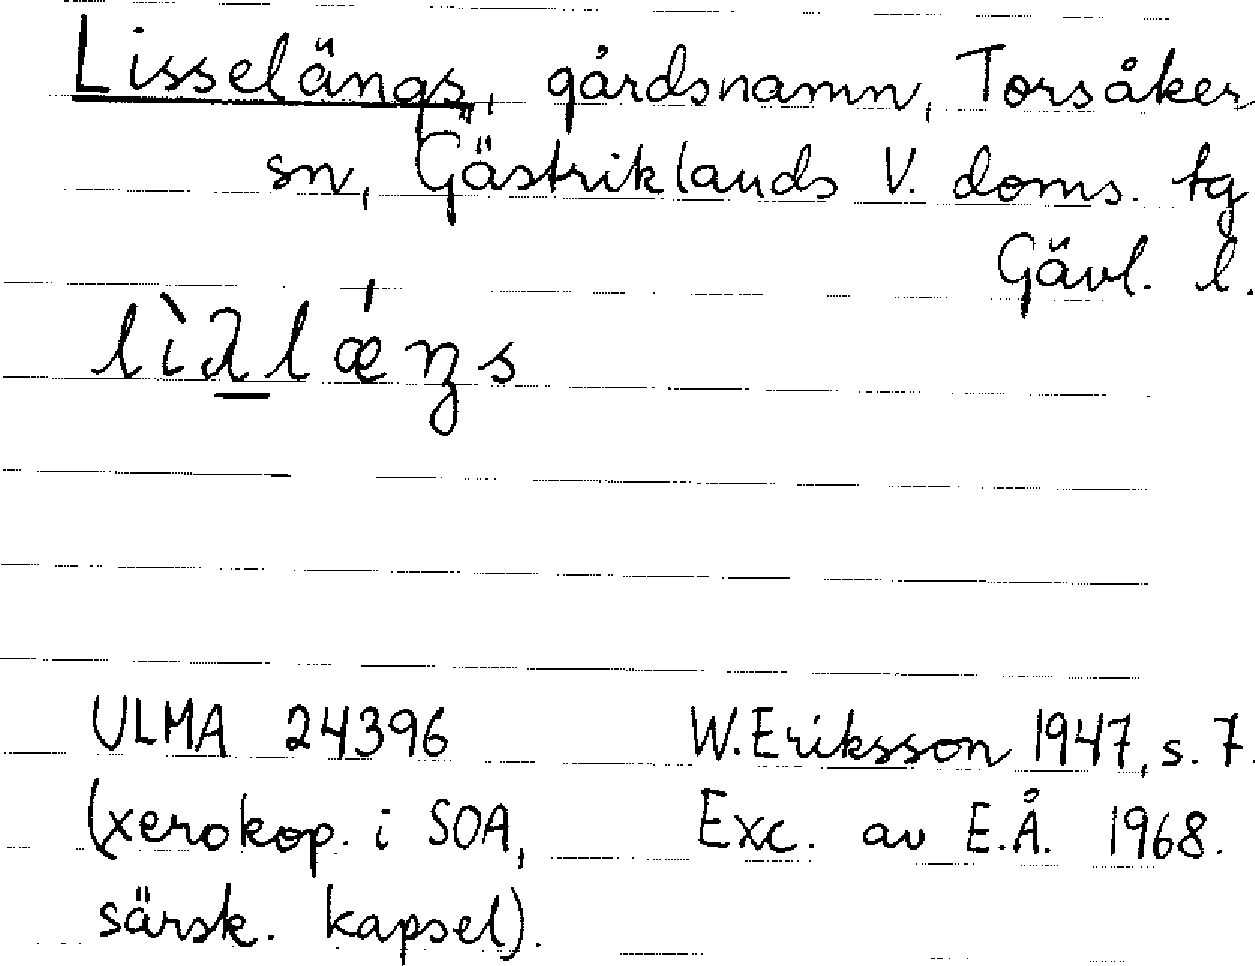 Lisselängs, gårdsnamn, Torsåker
sn, Gästriklands V. doms. tg
Gävl. l.
ULMA 24396 W. Eriksson 1947, s. 7.
(xerokop. i SOA, Exc. av E.Å. 1968.
särsk. kapsel).